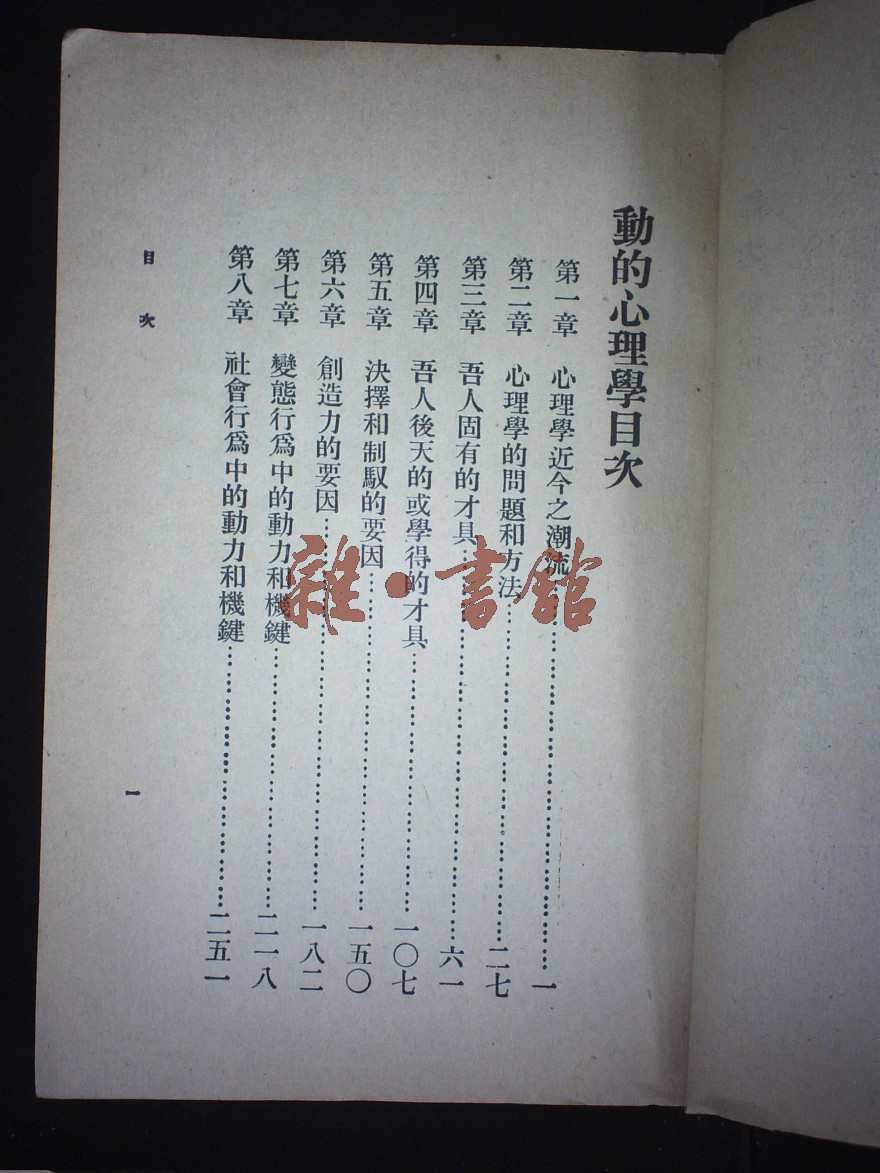 動的心理學目次
第一章 心理學近今之潮流……………………………一
第二章 心理學的問題和方法……………………………二七
第三章 吾人固有的才具……………………………六一
第四章 吾人後天的或學得的才具……………………………一〇七
第五章 決擇和制馭的要因……………………………一五〇
第六章 創造力的要因……………………………一八二
第七章 變態行爲中的動力和機鍵……………………………二一八
第八章 社會行爲中的動力和機鍵……………………………二五一
目次 一
雜·書館